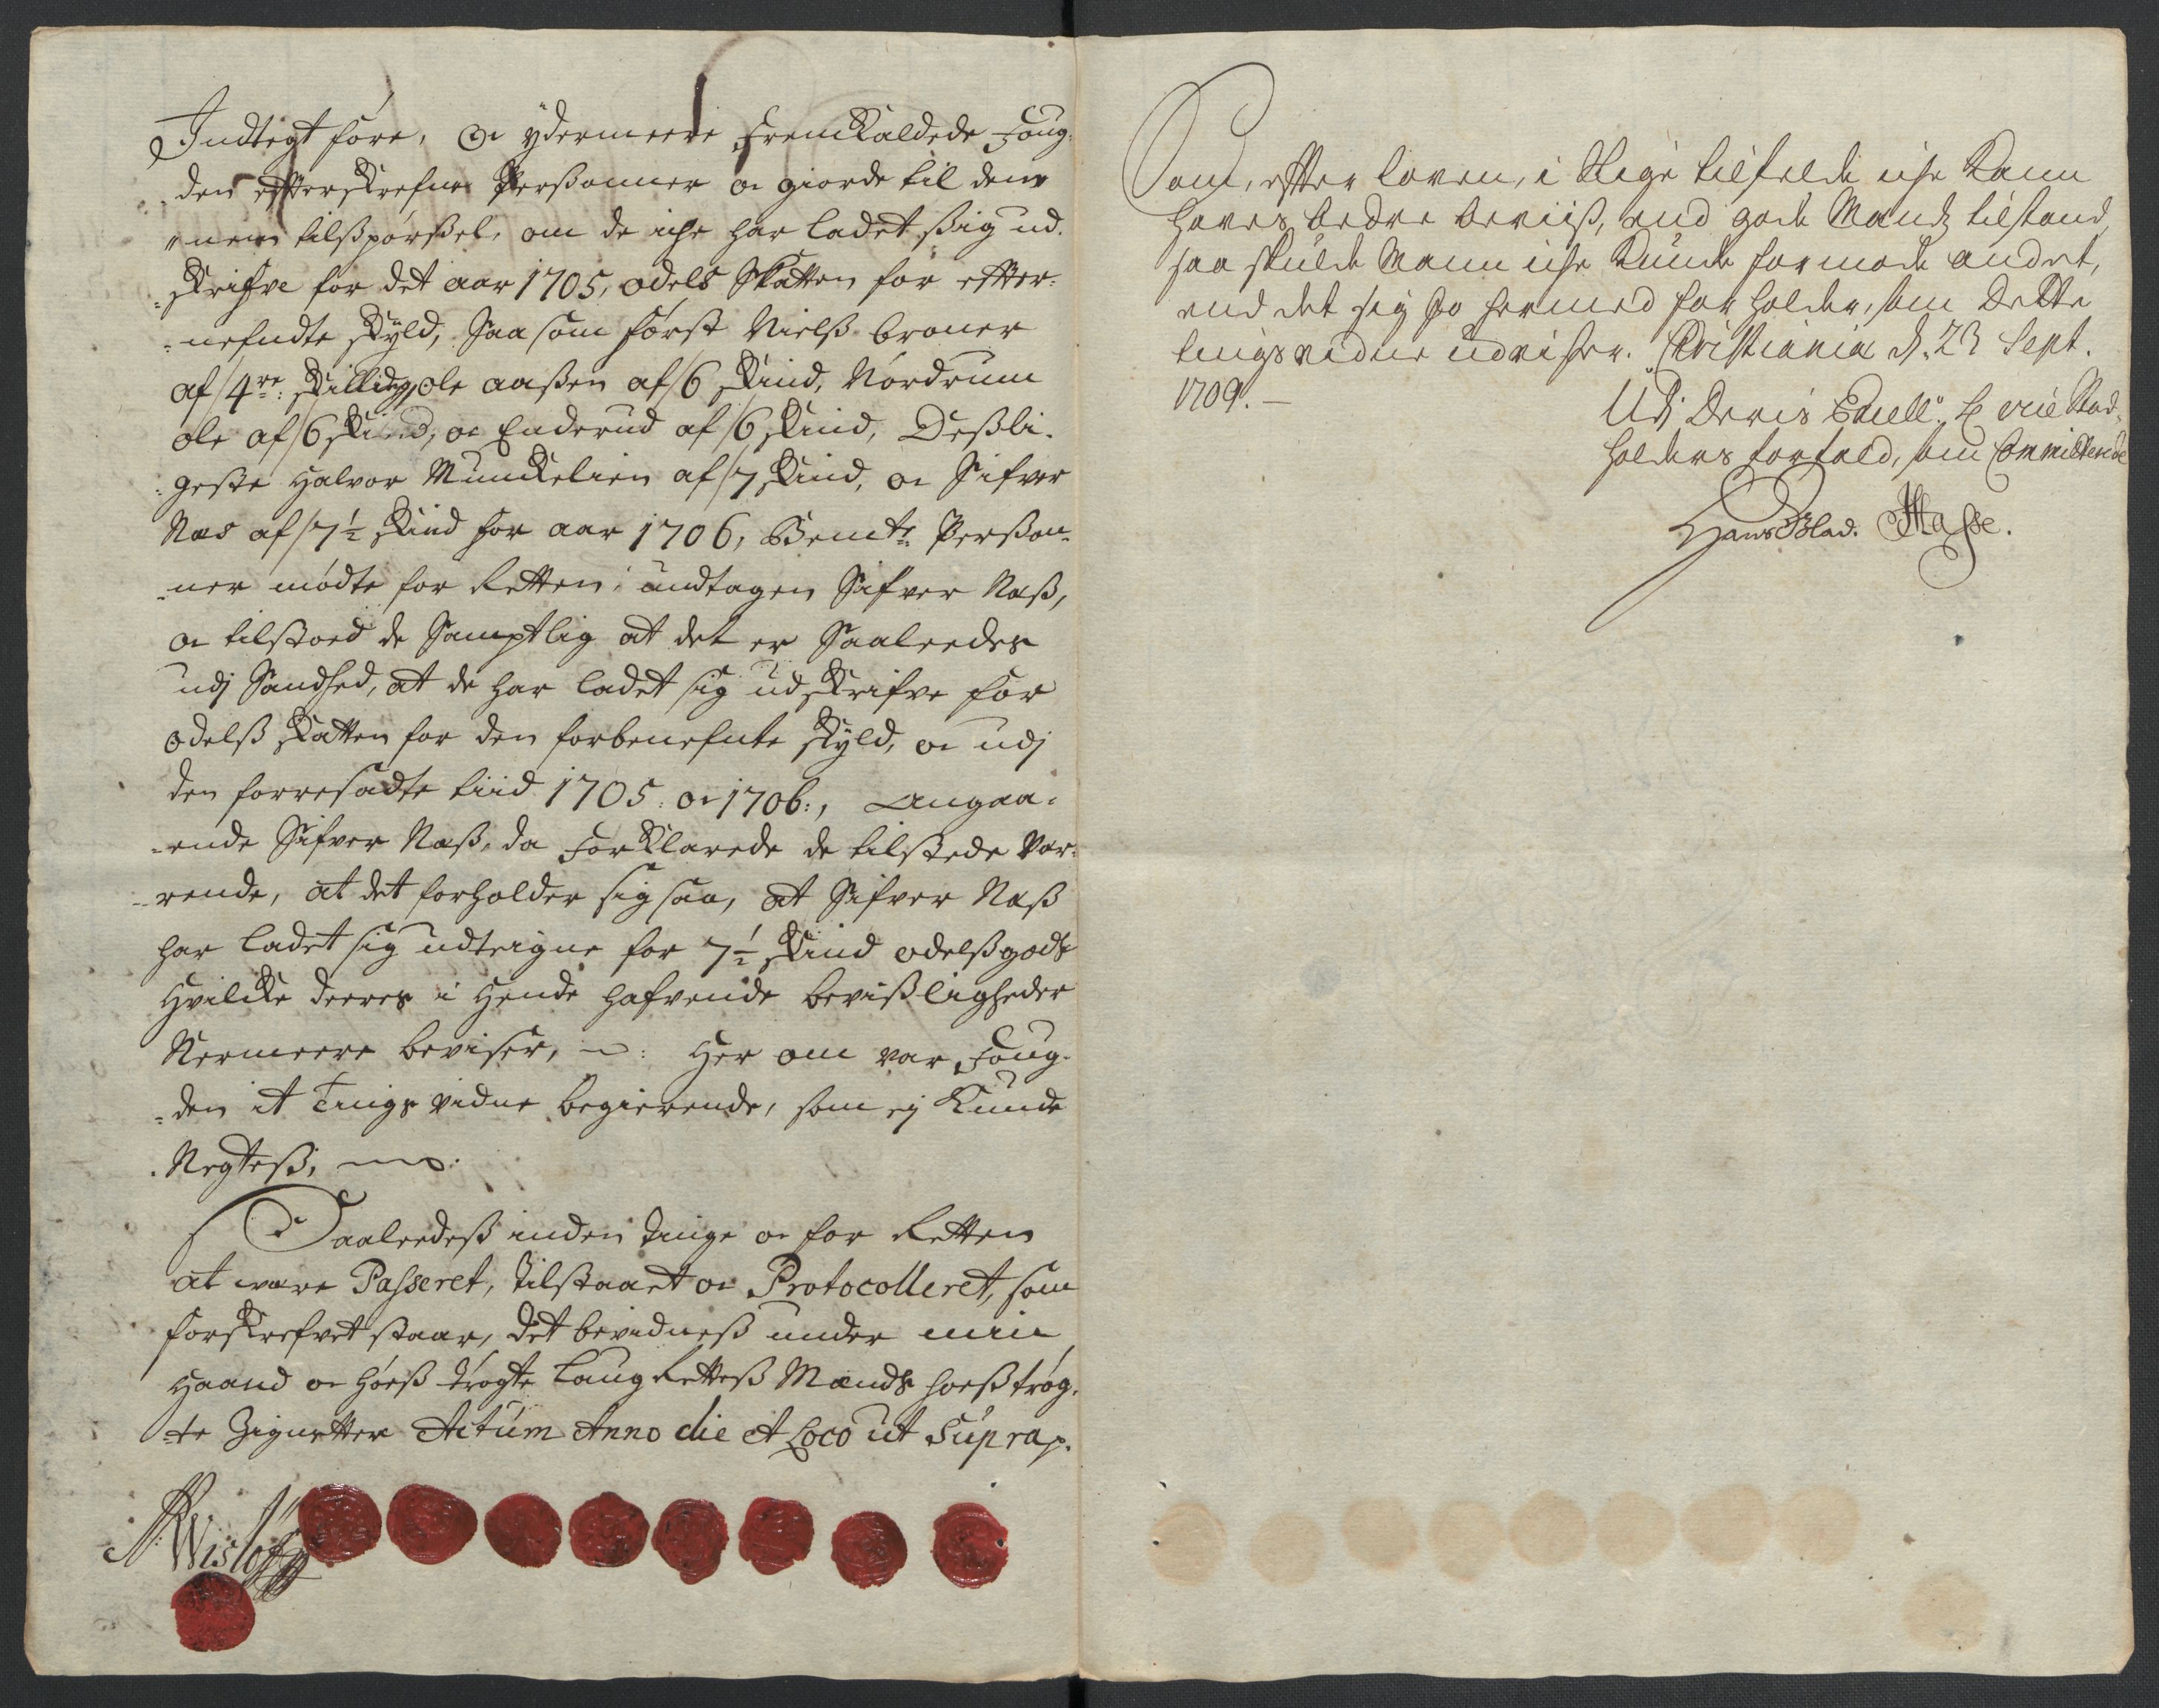 Indtegt före, Oc ydermeere fremkaldede foug-
den efterskrefne Perßoner oc giorde til dem
tilßpørßel, om de iche har ladet ßig ud-
skrifve for det aar 1705, odels Skatten for efter-
nefndte skyld, Saasom først Nielß broner
af 4re: skilling, ole aaßen af 6 skind, Nordrum
ole af 6 skind, oc Enderud af 6 skind, Deßli-
geste Halvor Munckelien af 7 skind, oc Sifver
Næs af 7½ skind for aar 1706, Bemte Perßon-
ner mødte for Retten, undtagen Sifver Næß,
oc tilstoed de Samptlig at det er Saaleedes
udj Sandhed, at de har ladet sig udskrifve for
odelß skatten for den forbenefnte skyld, oc udj
den forresadte tiid 1705. oc 1706:, Angaa-
ende Sifver Næß, da forklarede de tilstede vær-
rende, at det forholder sig saa, at Sifver Næß
har ladet sig udteigne for 7½ skind odelßgods
Hvilcke deeres i Hende hafvende bevißligheder
Nermeere beviser, Her om var foug-
den it Tings vidne begierende, som ej kunde
Negteß,
Saaleedeß inden Tinge oc for Retten
at være Passeret, tilstaaet oc Protocolleret, som
forskrefvet staar, det bevidneß under min
Haand oc hoeß trøgte Laug Retteß Mænds hoeßtrøg-
te Zignetter Actum Anno die et Loco ut Supra
Som, efter loven, i slige tilfelde iche kann
haves bedre beviiß, end gode Mænds tilstand,
saa skulde Mann iche kunde formode andet,
end det sig jo hermed forholder, som dette
tingsvidne udviser. Christiania d. 23 Sept.
1709.
Udj Deris Vice Stad-
holders forfald, som Committerede
Hans Blad.